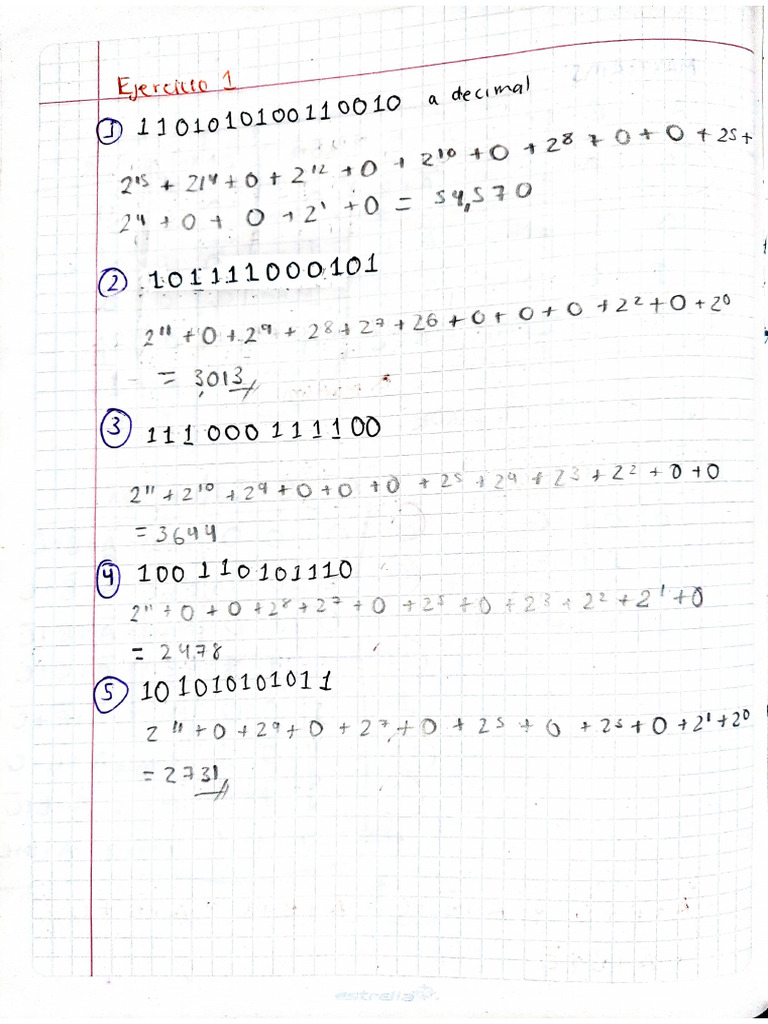 Ejercicio 1
① 1101010100110010 a decimal
2¹⁵ + 2¹⁴ + 0 + 2¹² + 0 + 2¹⁰ + 0 + 2⁸ + 0 + 0 + 2⁵ +
2⁴ + 0 + 0 + 2¹ + 0 = 54,570
② 101111000101
2¹¹ + 0 + 2⁹ + 2⁸ + 2⁷ + 2⁶ + 0 + 0 + 0 + 2² + 0 + 2⁰
= 3013
③ 111000111100
2¹¹ + 2¹⁰ + 2⁹ + 0 + 0 + 0 + 2⁵ + 2⁴ + 2³ + 2² + 0 + 0
= 3644
④ 100110101110
2¹¹ + 0 + 0 + 2⁸ + 2⁷ + 0 + 2⁵ + 0 + 2³ + 2² + 2¹ + 0
= 2478
⑤ 101010101011
2¹¹ + 0 + 2⁹ + 0 + 2⁷ + 0 + 2⁵ + 0 + 2⁵ + 0 + 2¹ + 2⁰
= 2731
estrella